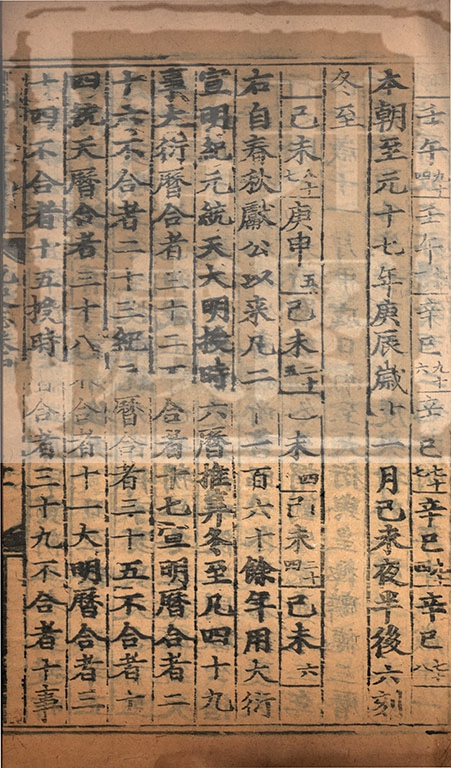 壬午壬午辛巳九十六辛巳七十七辛巳辛巳七十八
本朝至元十七年庚辰歲十一月己未夜半後六刻
冬至
己未庚申五己未二十五己未四己未三十四己未六
右自春秋獻公以来凡二千一百六十餘年用大衍
宣明紀元統天大明授時六曆推筭冬至凡四十九
事大衍曆合者三十二不合者十七宣明曆合者二
十六不合者二十三紀元曆合者三十五不合者十
四統天曆合者三十八不合者十一大明曆合者三
十四不合者十五授時曆合者三十九不合者十事